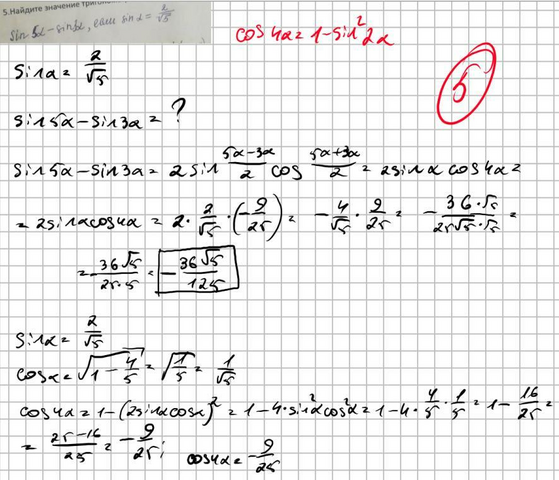 5. Найдите значение тригоно
sin 5α − sin 3α, если sin α = 2/√5
cos 4α = 1 − sin² 2α
5
sin α = 2/√5
sin 5α − sin 3α = ?
sin 5α − sin 3α = 2 sin (5α−3α)/2 cos (5α+3α)/2 = 2 sin α cos 4α =
= 2 sin α cos 4α = 2 · 2/√5 · (−9/25) = −4/√5 · 9/25 = −36·√5/25√5·√5 =
= −36√5/25·5 = −36√5/125
sin α = 2/√5
cos α = √(1 − 4/5) = √(1/5) = 1/√5
cos 4α = 1 − (2 sin α cos α)² = 1 − 4 · sin² α cos² α = 1 − 4 · 4/5 · 1/5 = 1 − 16/25 =
= 25−16/25 = −9/25; cos 4α = −9/25